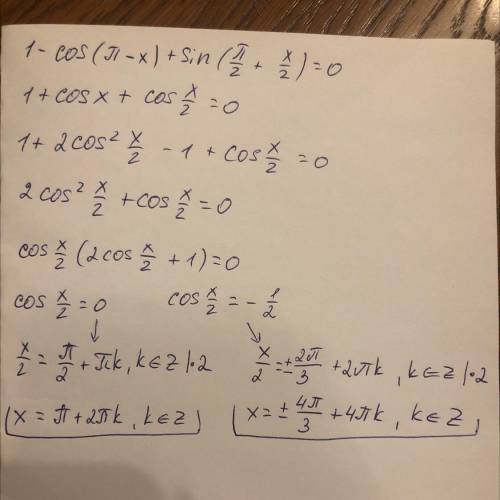 1 - cos(π - x) + sin(π/2 + x/2) = 0
1 + cos x + cos x/2 = 0
1 + 2cos² x/2 - 1 + cos x/2 = 0
2cos² x/2 + cos x/2 = 0
cos x/2 (2cos x/2 + 1) = 0
cos x/2 = 0    cos x/2 = - 1/2
↓    ↘
x/2 = π/2 + πk, k ∈ Z |·2    x/2 = ± 2π/3 + 2πk, k ∈ Z |·2
x = π + 2πk, k ∈ Z    x = ± 4π/3 + 4πk, k ∈ Z